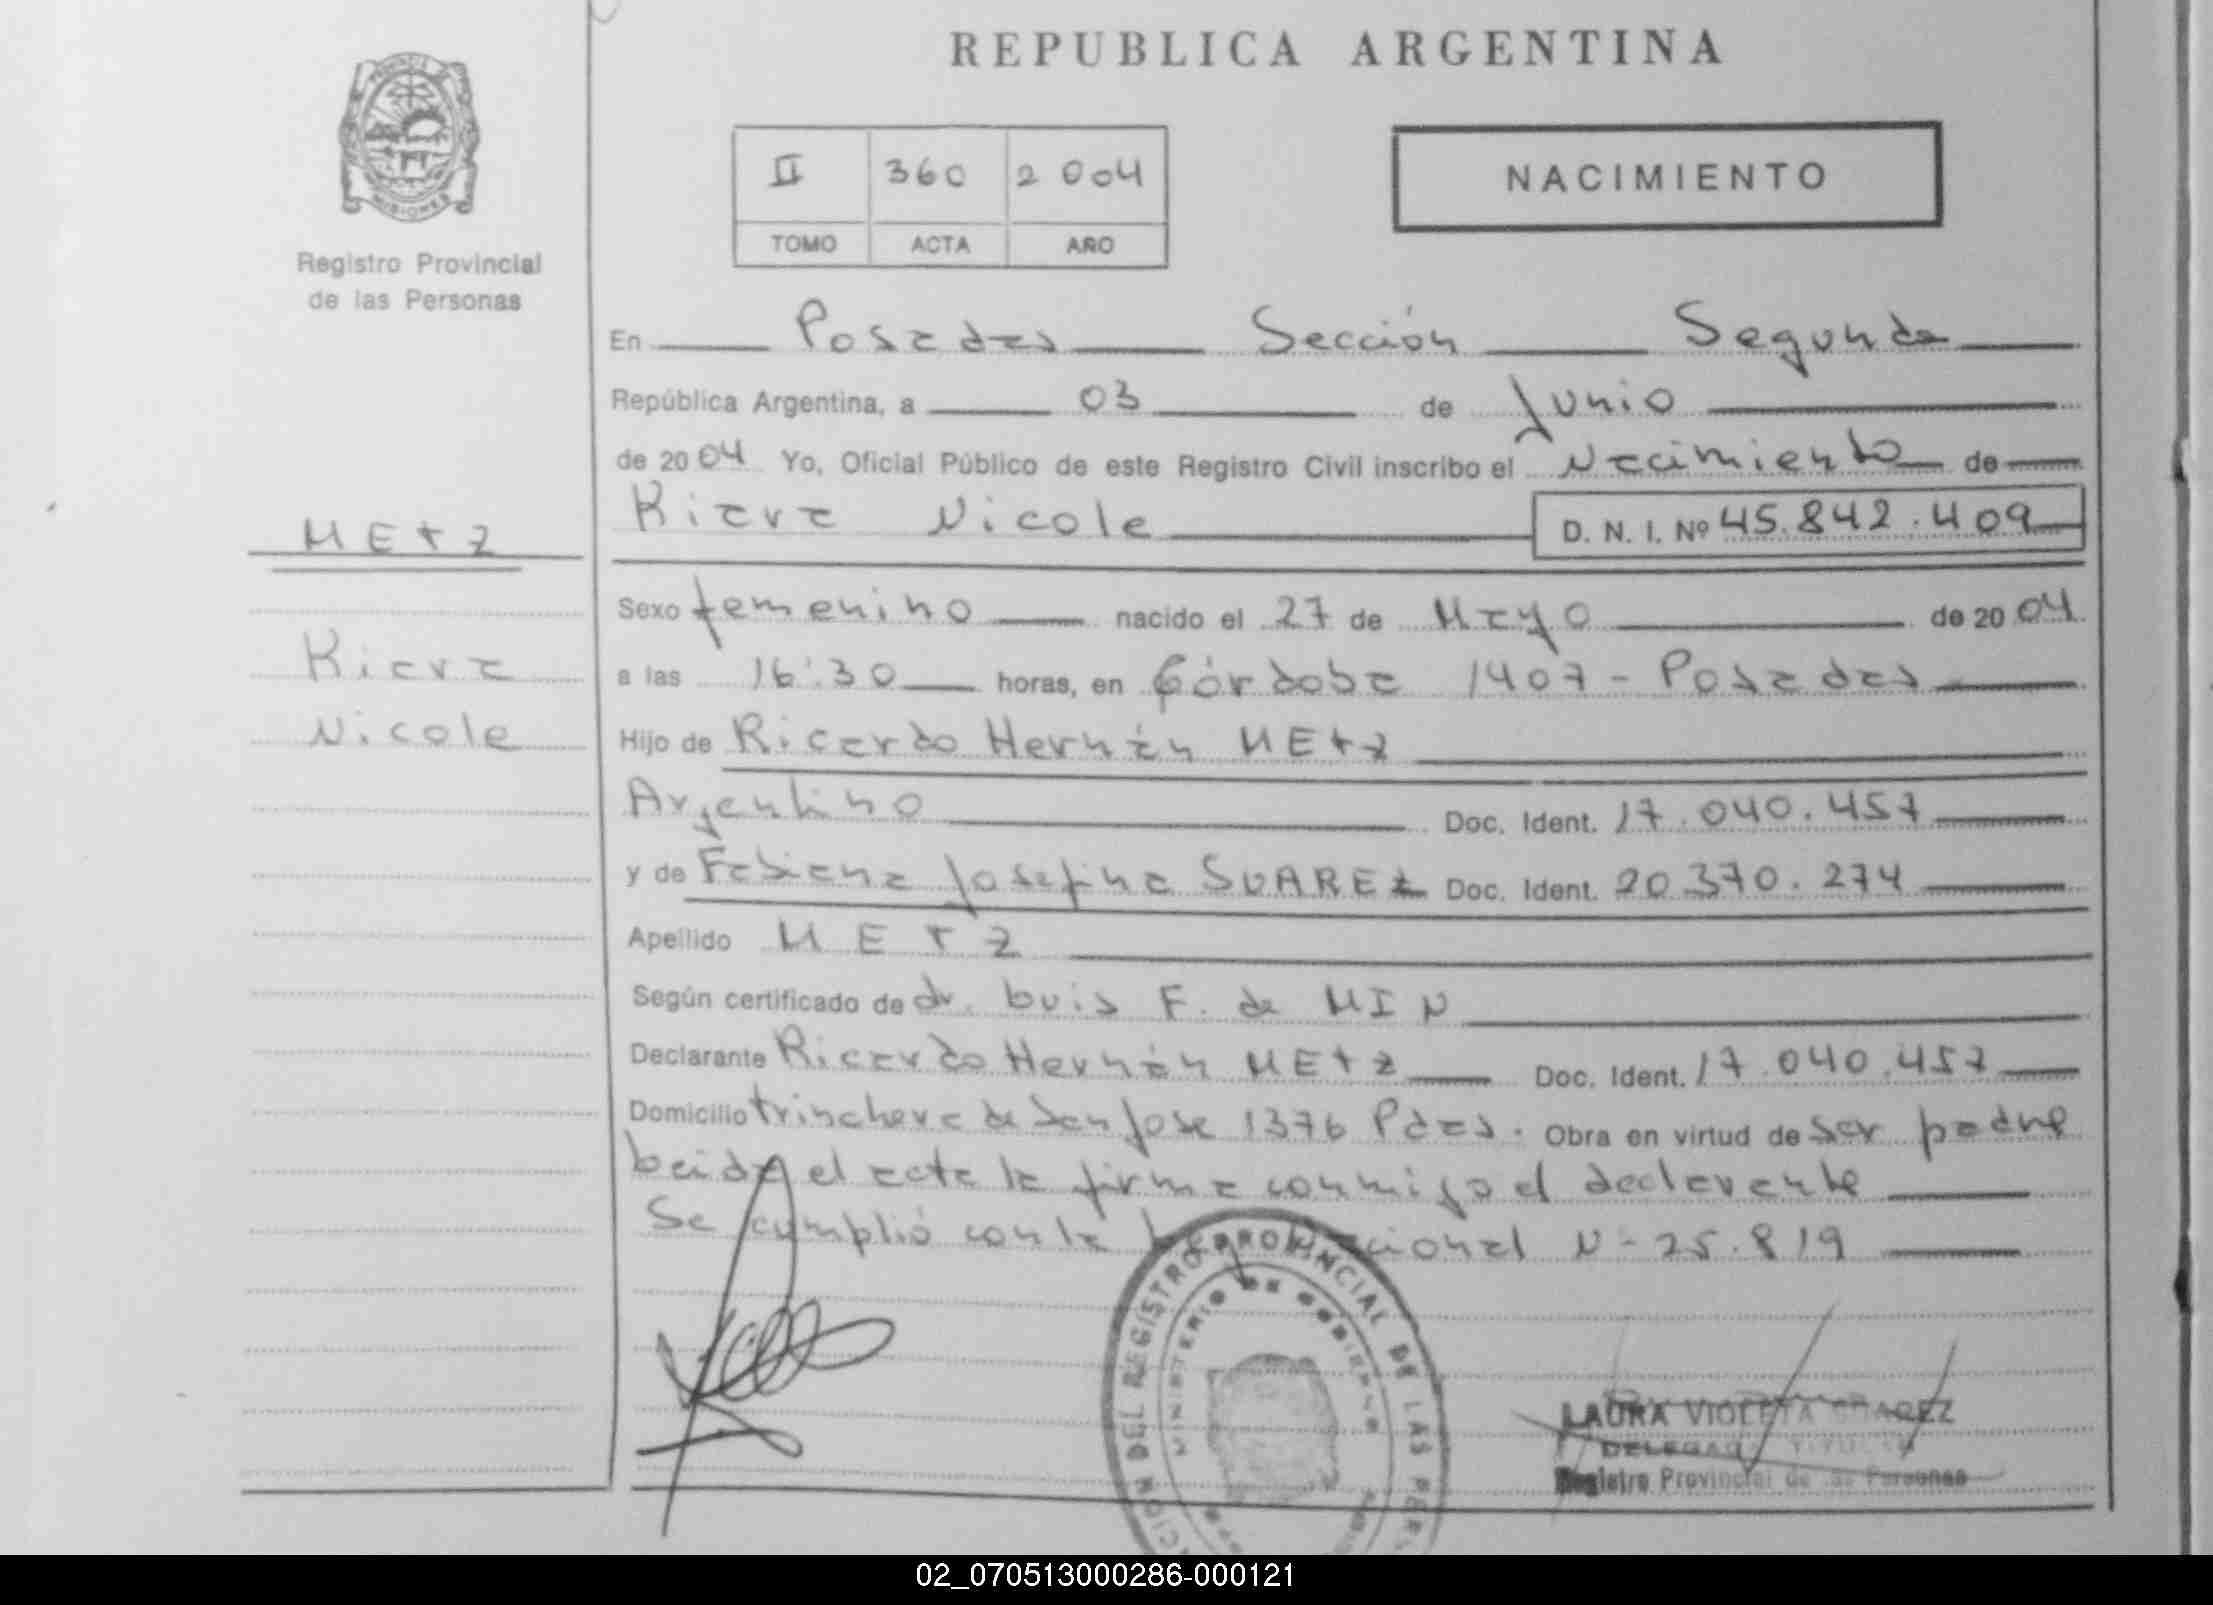 REPUBLICA ARGENTINA
PROVINCIA DE
MISIONES
Registro Provincial
de las Personas
II 360 2004
TOMO ACTA AÑO
NACIMIENTO
En Posadas Sección Segunda
República Argentina, a 03 de Junio
de 2004 Yo, Oficial Público de este Registro Civil inscribo el Nacimiento de
Kiara Nicole D. N. I. Nº 45.842.409
METZ
Kiara
Nicole
Sexo femenino nacido el 27 de Mayo de 2004
a las 16:30 horas, en Córdoba 1407 - Posadas
Hijo de Ricardo Hernán METZ
Argentino Doc. Ident. 17.040.457
y de Fabiana Josefina SUAREZ Doc. Ident. 20.370.274
Apellido METZ
Según certificado de dr. Luis F. de MIN
Declarante Ricardo Hernán METZ Doc. Ident. 17.040.457
Domicilio trinchera de San Jose 1376 Pdas. Obra en virtud de ser padre
Leida el acta la firma conmigo el declarante
Se cumplió con la Nacional N- 25.819
DEL REGISTRO PROVINCIAL DE LAS
MINISTERIO DE GOBIERNO
LAURA VIOLETA
Registro Provincial de las Personas
02_070513000286-000121